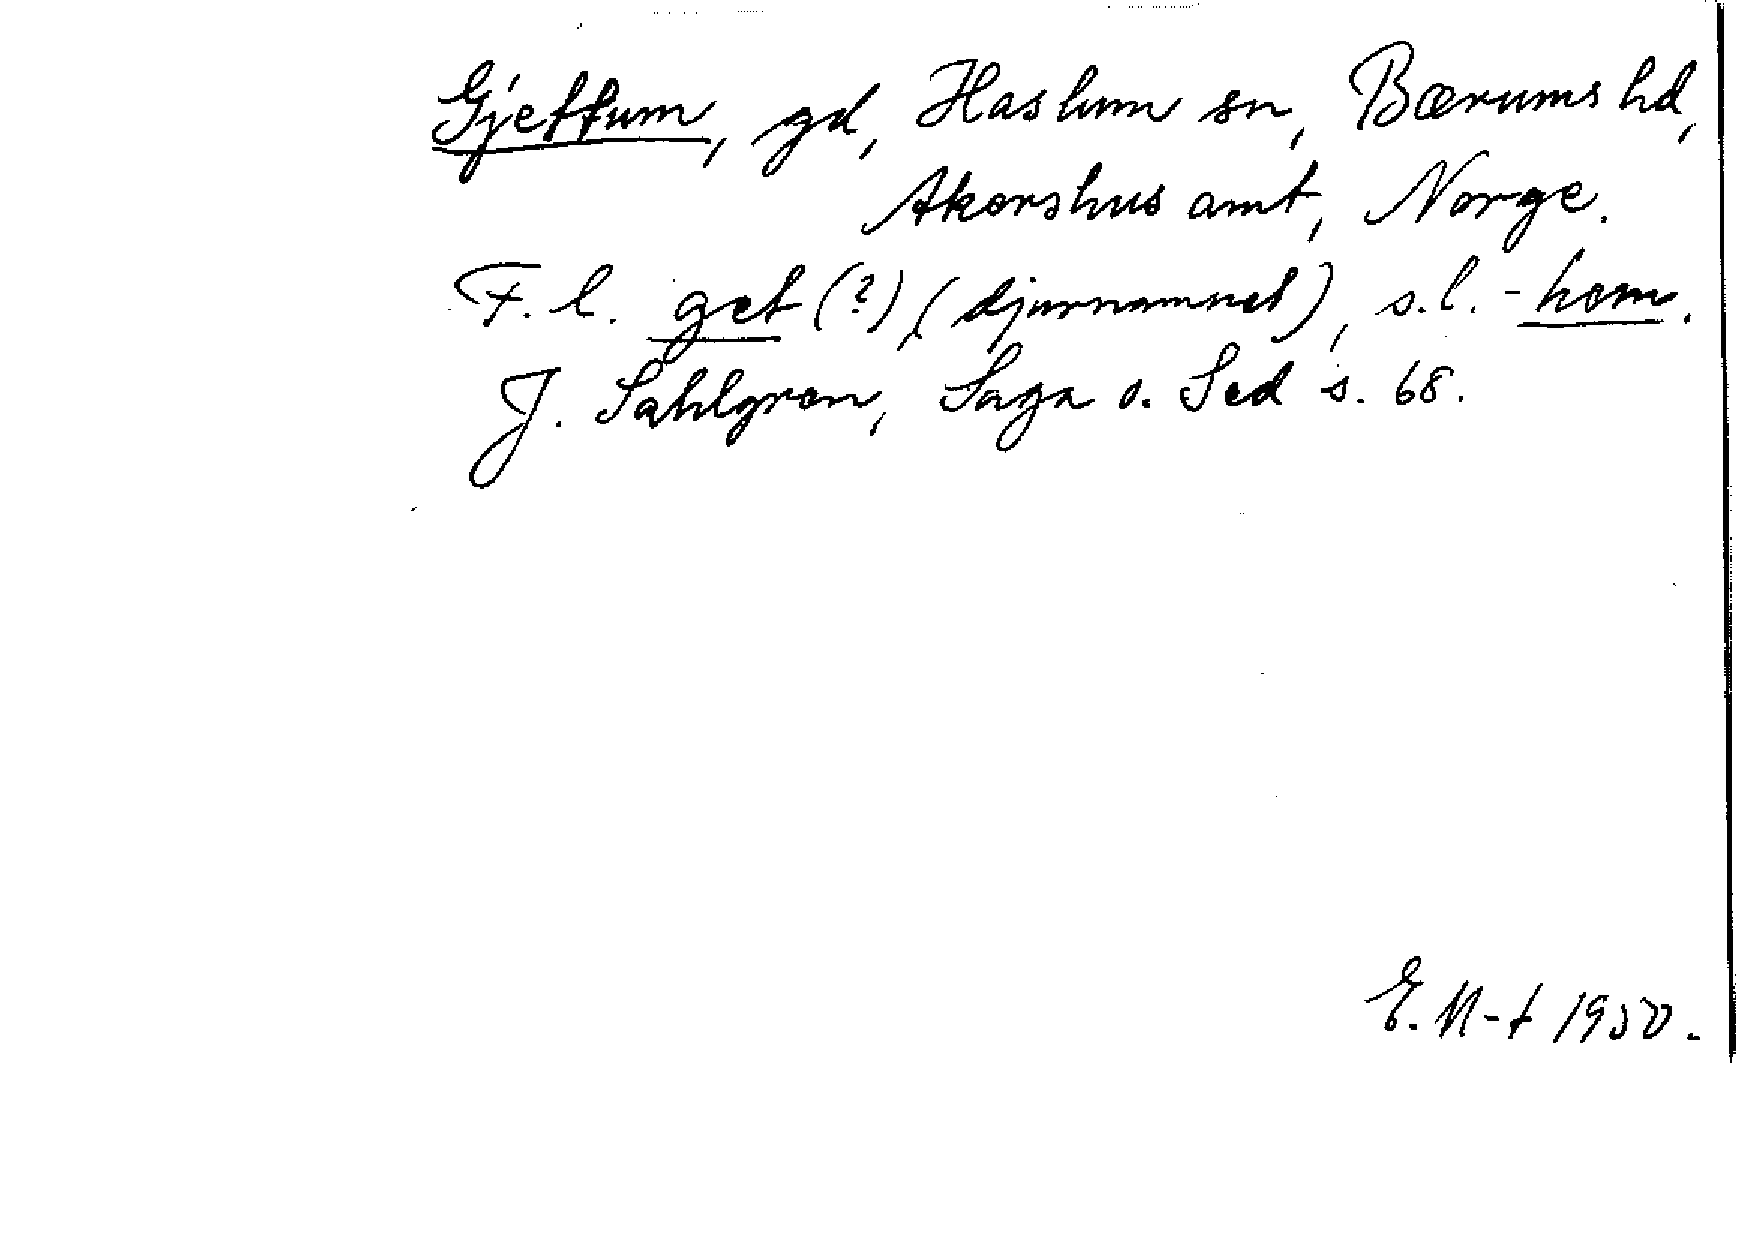 Gjettum, gd, Haslum sn, Bærums hd,
Akershus amt, Norge.
F. l. get (?) (djurnamnet), s.l. -hem.
J. Sahlgren, Saga o. Sed s. 68.
E. N-t 1950.